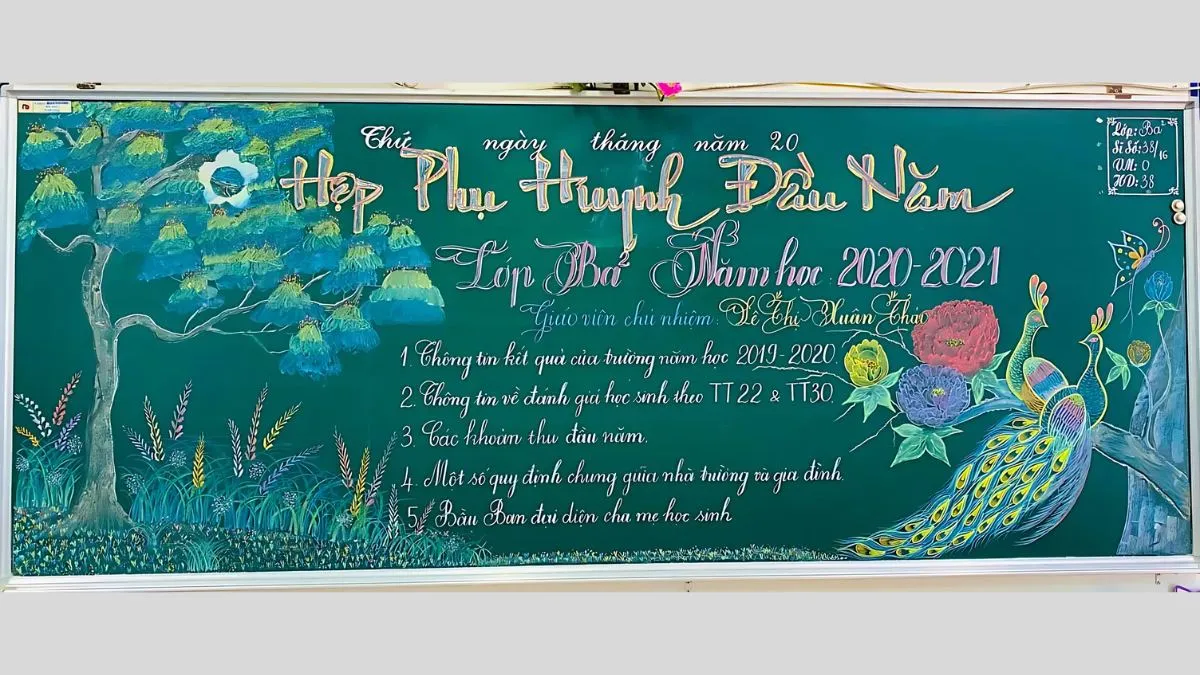 Thứ ngày tháng năm 20
Họp Phụ Huynh Đầu Năm
Lớp Ba² Năm học: 2020-2021
Giáo viên chủ nhiệm: Lê Thị Xuân Thảo
1. Thông tin kết quả của trường năm học 2019-2020.
2. Thông tin về đánh giá học sinh theo TT 22 & TT30.
3. Các khoản thu đầu năm.
4. Một số quy định chung giữa nhà trường và gia đình.
5. Bầu Ban đại diện cha mẹ học sinh
Lớp: Ba²
Sĩ Số: 38/16
VM: 0
HD: 38